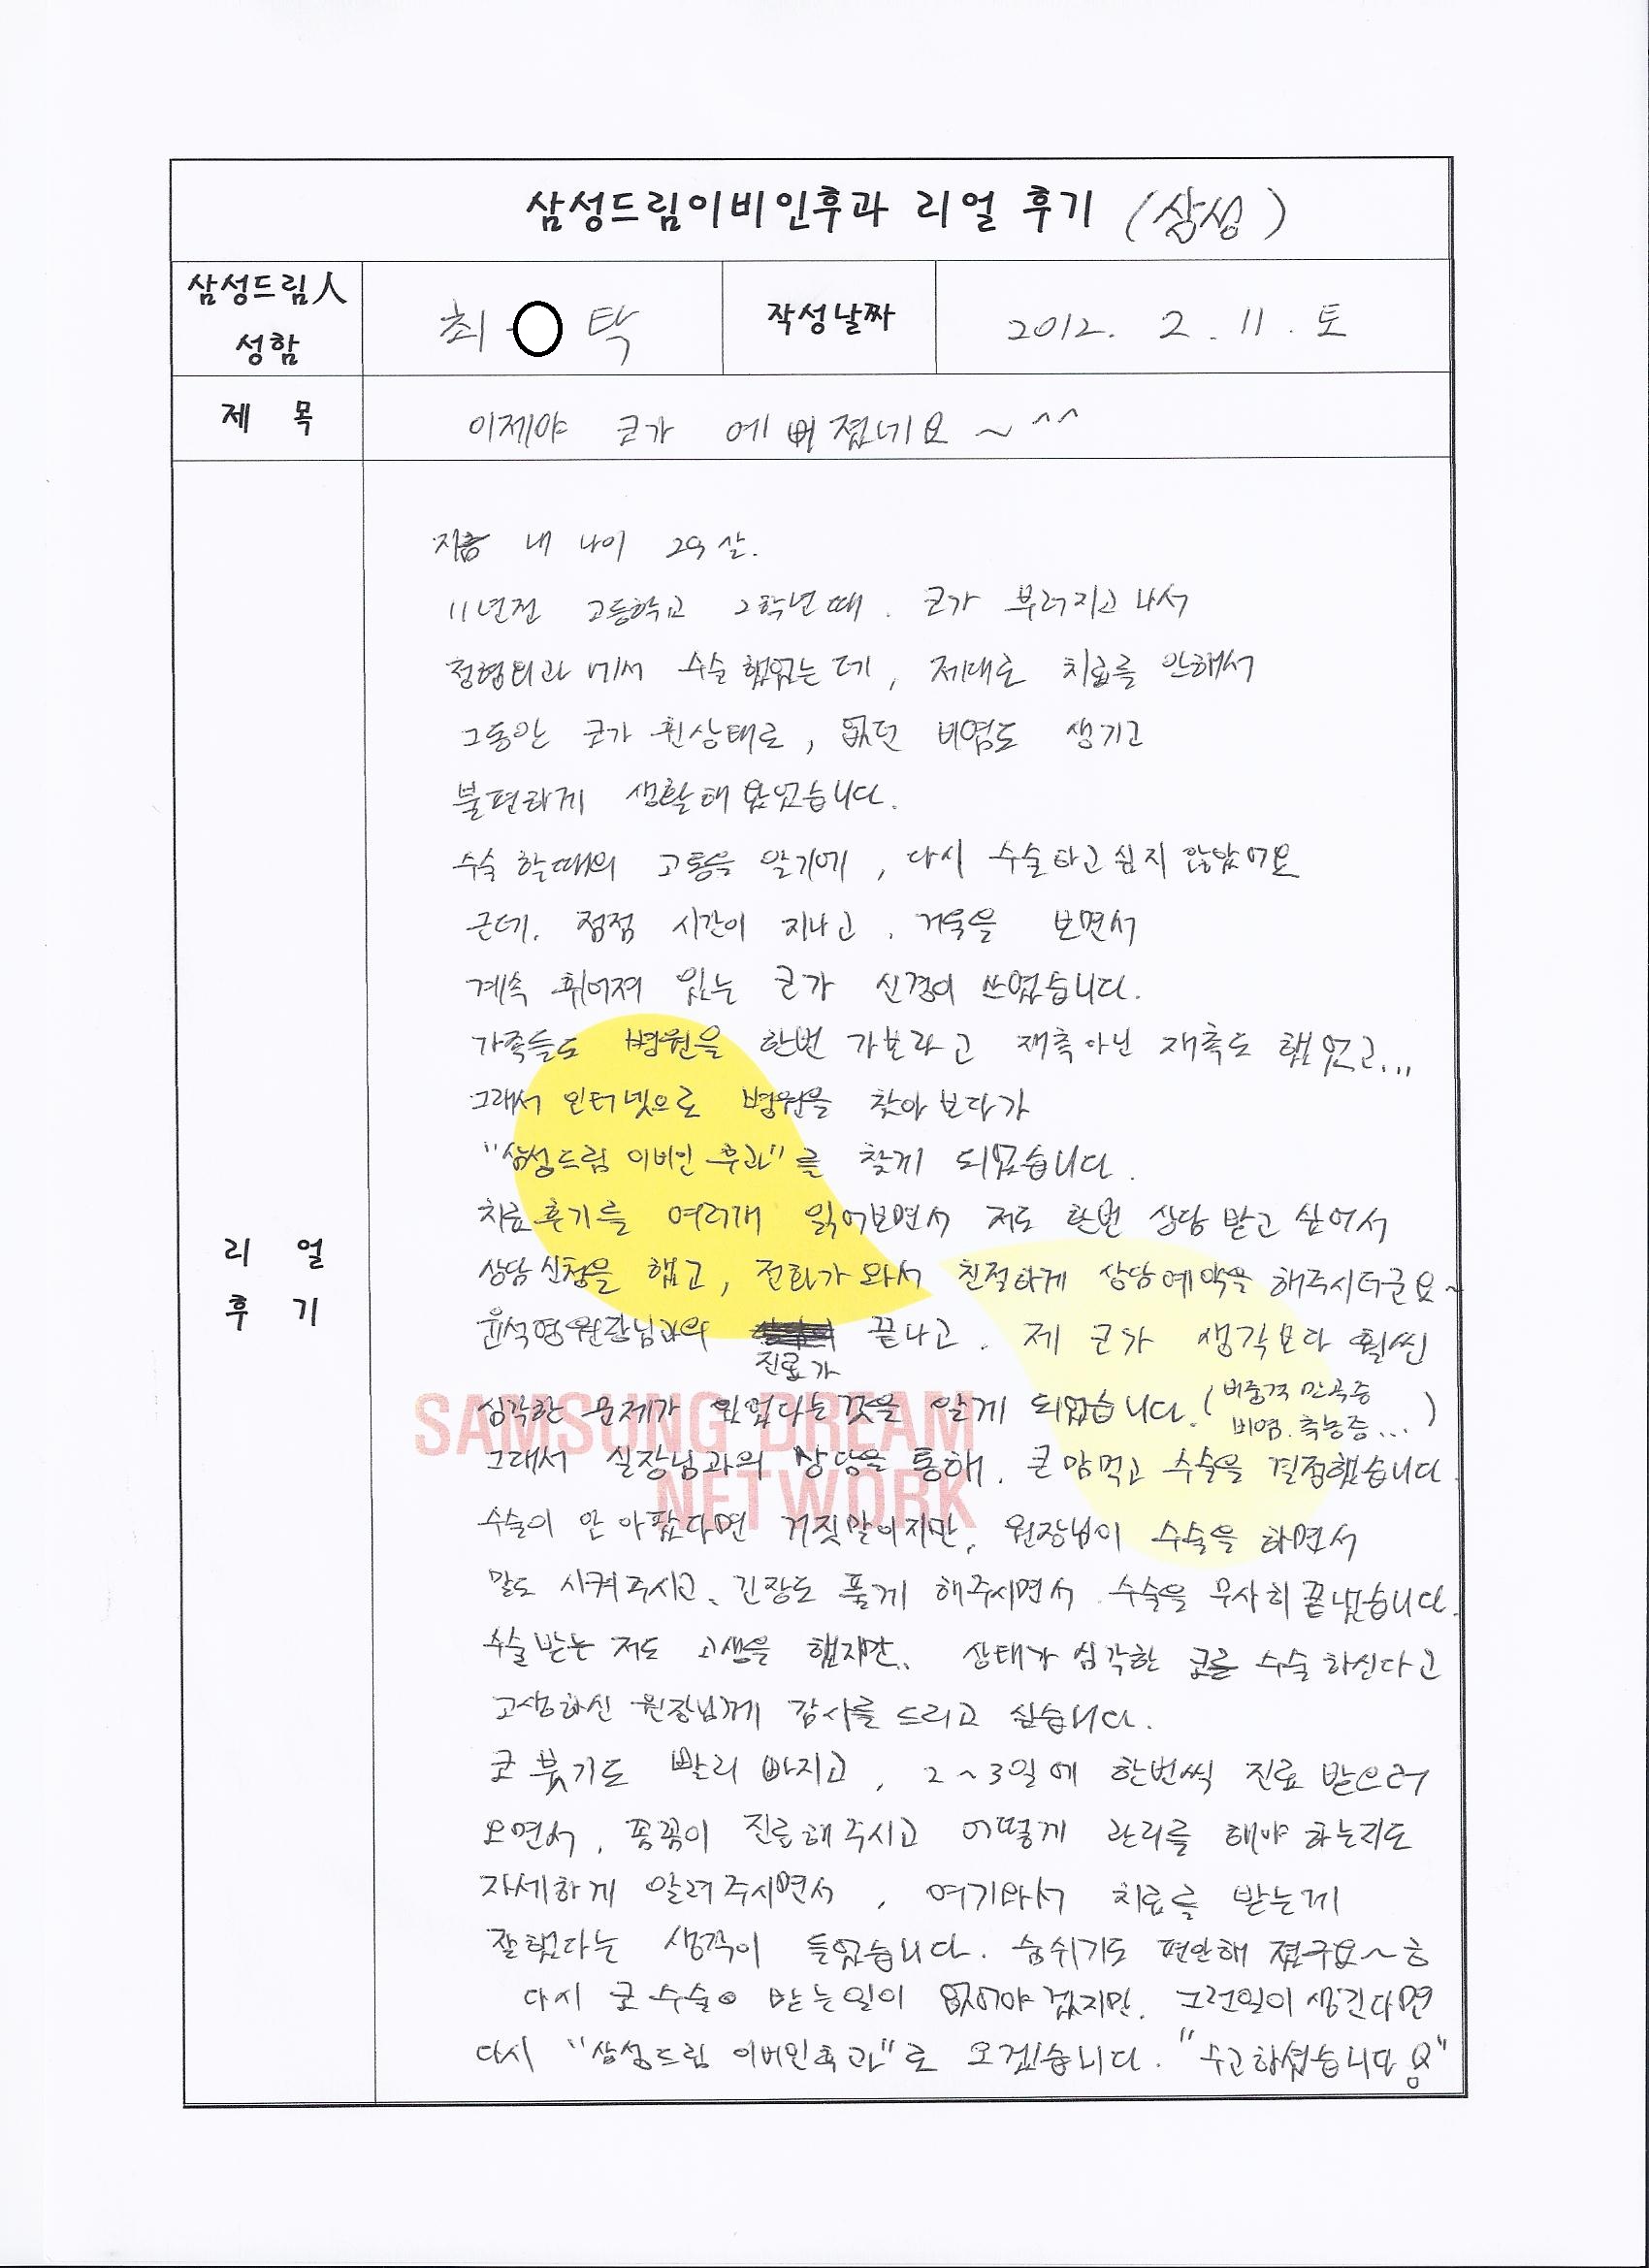 삼성드림이비인후과 리얼 후기 (삼성)
삼성드림人
성함
최 탁
작성날짜
2012. 2. 11. 토
제 목
이제야 코가 예뻐졌네요 ~ ^^
리 얼
후 기
지금 내 나이 29살.
11년전 고등학교 2학년때. 코가 부러지고 나서
정형외과에서 수술했었는데, 제대로 치료를 안해서
그동안 코가 휜상태로, 없던 비염도 생기고
불편하게 생활해 왔었습니다.
수술 할때의 고통을 알기에, 다시 수술하고 싶지 않았어요
근데. 점점 시간이 지나고. 거울을 보면서
계속 휘어져 있는 코가 신경이 쓰였습니다.
가족들도 병원을 한번 가보라고 재촉아닌 재촉도 했었고...
그래서 인터넷으로 병원을 찾아보다가
"삼성드림 이비인후과"를 찾게 되었습니다.
치료후기를 여러개 읽어보면서 저도 한번 상담 받고 싶어서
상담 신청을 했고, 전화가 와서 친절하게 상담예약을 해주시더군요~
윤석영원장님과의 진료가 끝나고. 제 코가 생각보다 훨씬
심각한 문제가 있었다는것을 알게 되었습니다. (비중격 만곡증 비염. 축농증...)
그래서 실장님과의 상담을 통해. 큰맘먹고 수술을 결정했습니다.
수술이 안 아팠다면 거짓말이지만, 원장님이 수술을 하면서
말도 시켜주시고, 긴장도 풀게 해주시면서 수술을 무사히 끝냈습니다.
수술받는 저도 고생을 했지만.. 상태가 심각한 코를 수술하신다고
고생하신 원장님께 감사를 드리고 싶습니다.
코 붓기도 빨리 빠지고, 2~3일에 한번씩 진료 받으러
오면서, 꼼꼼이 진료해주시고 어떻게 관리를 해야 하는지도
자세하게 알려주시면서, 여기와서 치료를 받는게
잘했다는 생각이 들었습니다. 숨쉬기도 편안해 졌구요~ㅎ
다시 코 수술 받는일이 없어야 겠지만. 그런일이 생긴다면
다시 "삼성드림 이비인후과"로 오겠습니다. "수고하셨습니다용"
SAMSUNG DREAM
NETWORK